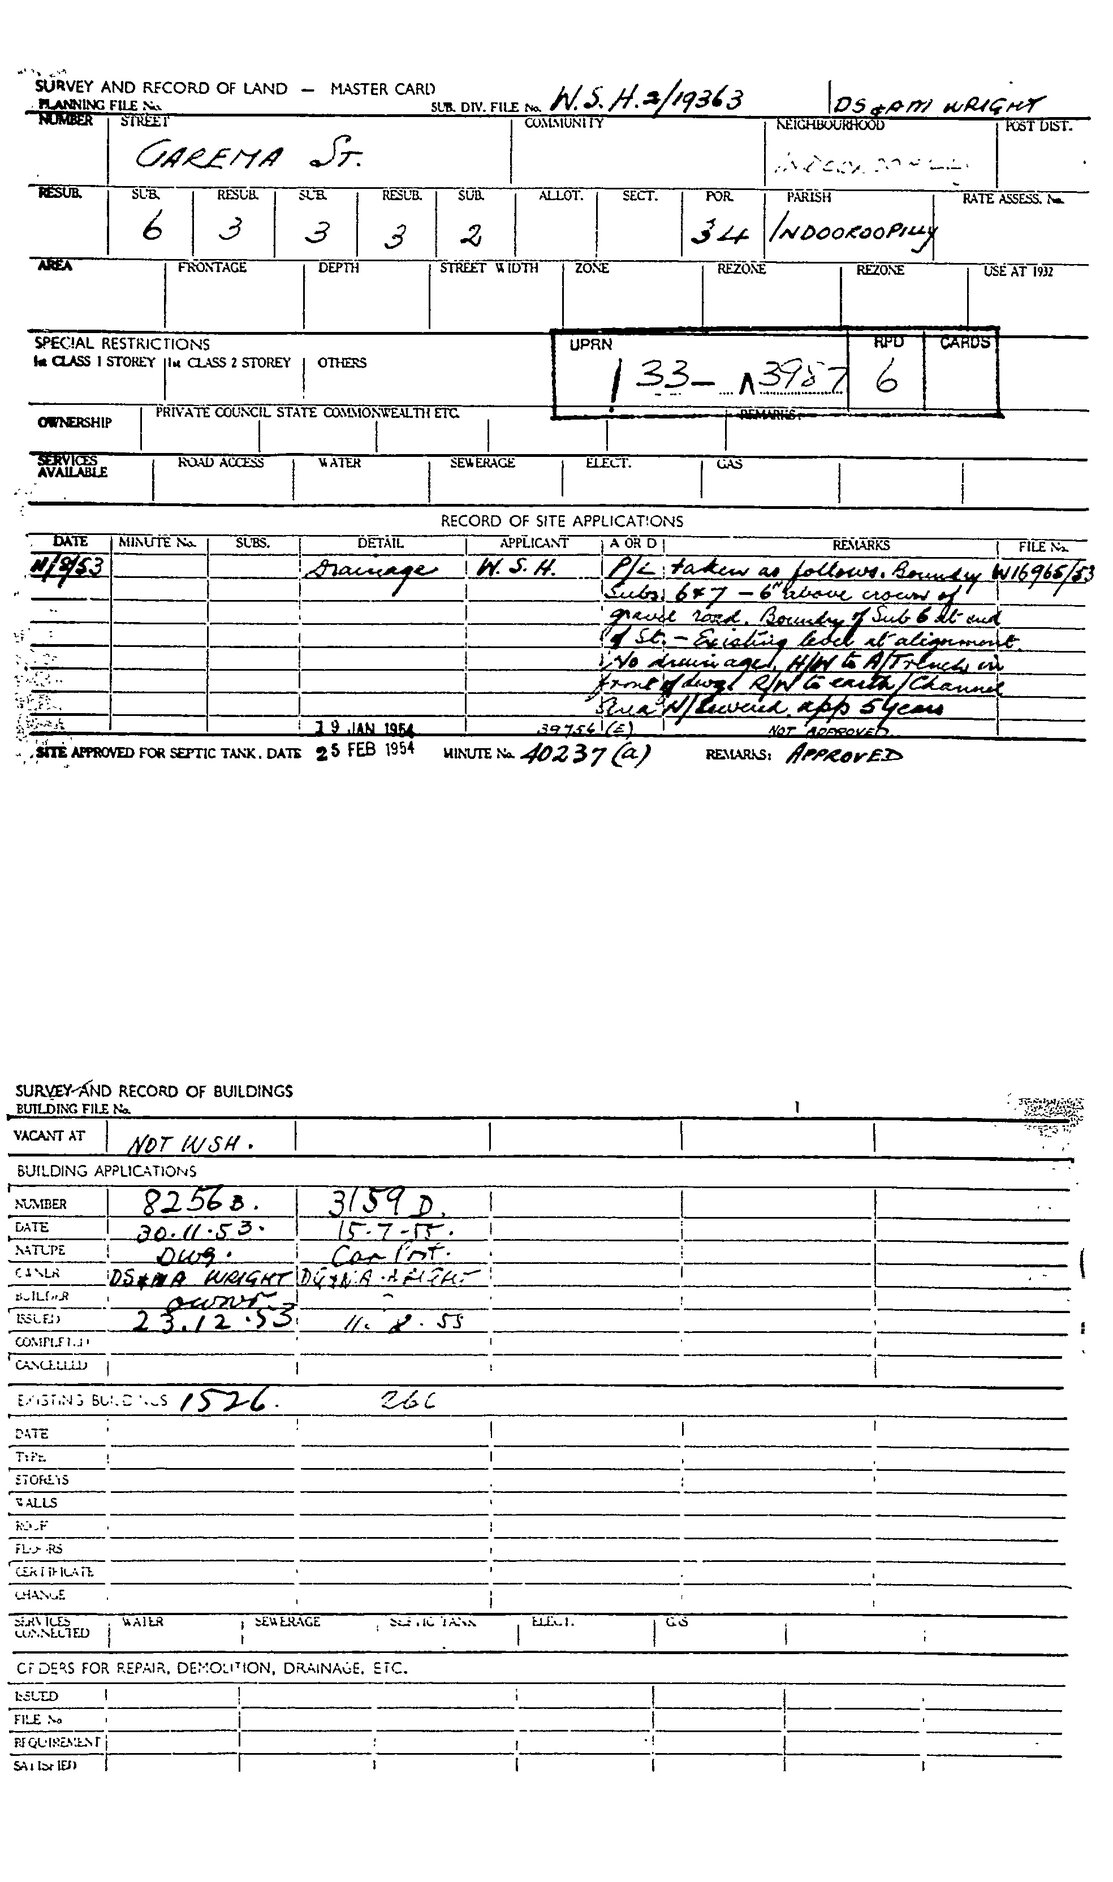 SURVEY AND RECORD OF LAND — MASTER CARD
PLANNING FILE No. SUB. DIV. FILE No. W.S.H.2/19363 DS & AM WRIGHT
NUMBER STREET COMMUNITY NEIGHBOURHOOD POST DIST.
GAREMA ST.
RESUB. SUB. RESUB. SUB. RESUB. SUB. ALLOT. SECT. POR. PARISH RATE ASSESS. No.
6 3 3 3 2 34 INDOOROOPILLY
AREA FRONTAGE DEPTH STREET WIDTH ZONE REZONE REZONE USE AT 1932
SPECIAL RESTRICTIONS UPRN RPD CARDS
1st CLASS 1 STOREY 1st CLASS 2 STOREY OTHERS
133- 3957 6
OWNERSHIP PRIVATE COUNCIL STATE COMMONWEALTH ETC. REMARKS
SERVICES AVAILABLE ROAD ACCESS WATER SEWERAGE ELECT. GAS
RECORD OF SITE APPLICATIONS
DATE MINUTE No. SUBS. DETAIL APPLICANT A OR D REMARKS FILE No.
/8/53 Drainage W.S.H. P/L taken as follows. Boundry W16965/53
Subs. 6 & 7 – 6" above crown of
gravel road. Boundry of Sub 6 at end
of St. – Existing level at alignment.
No drainage. H/W to A/Trench in
front of dwg. R/W to earth/Channel
Area N/Sewered. app 5 years
19 JAN 1954 39756 (E) NOT APPROVED
SITE APPROVED FOR SEPTIC TANK. DATE 25 FEB 1954 MINUTE No. 40237 (a) REMARKS: APPROVED
SURVEY AND RECORD OF BUILDINGS
BUILDING FILE No.
VACANT AT NOT WSH.
BUILDING APPLICATIONS
NUMBER 8256 B. 3159 D.
DATE 30.11.53. 15-7-55.
NATURE Dwg. Car Port.
OWNER DS & MA WRIGHT
BUILDER owner
ISSUED 23.12.53 11.8.55
COMPLETED
CANCELLED
EXISTING BUILDINGS 1526. 266
DATE
TYPE
STOREYS
WALLS
ROOF
FLOORS
CERTIFICATE
CHANGE
SERVICES CONNECTED WATER SEWERAGE SEPTIC TANK ELECT. GAS
ORDERS FOR REPAIR, DEMOLITION, DRAINAGE, ETC.
ISSUED
FILE No
REQUIREMENT
SATISFIED